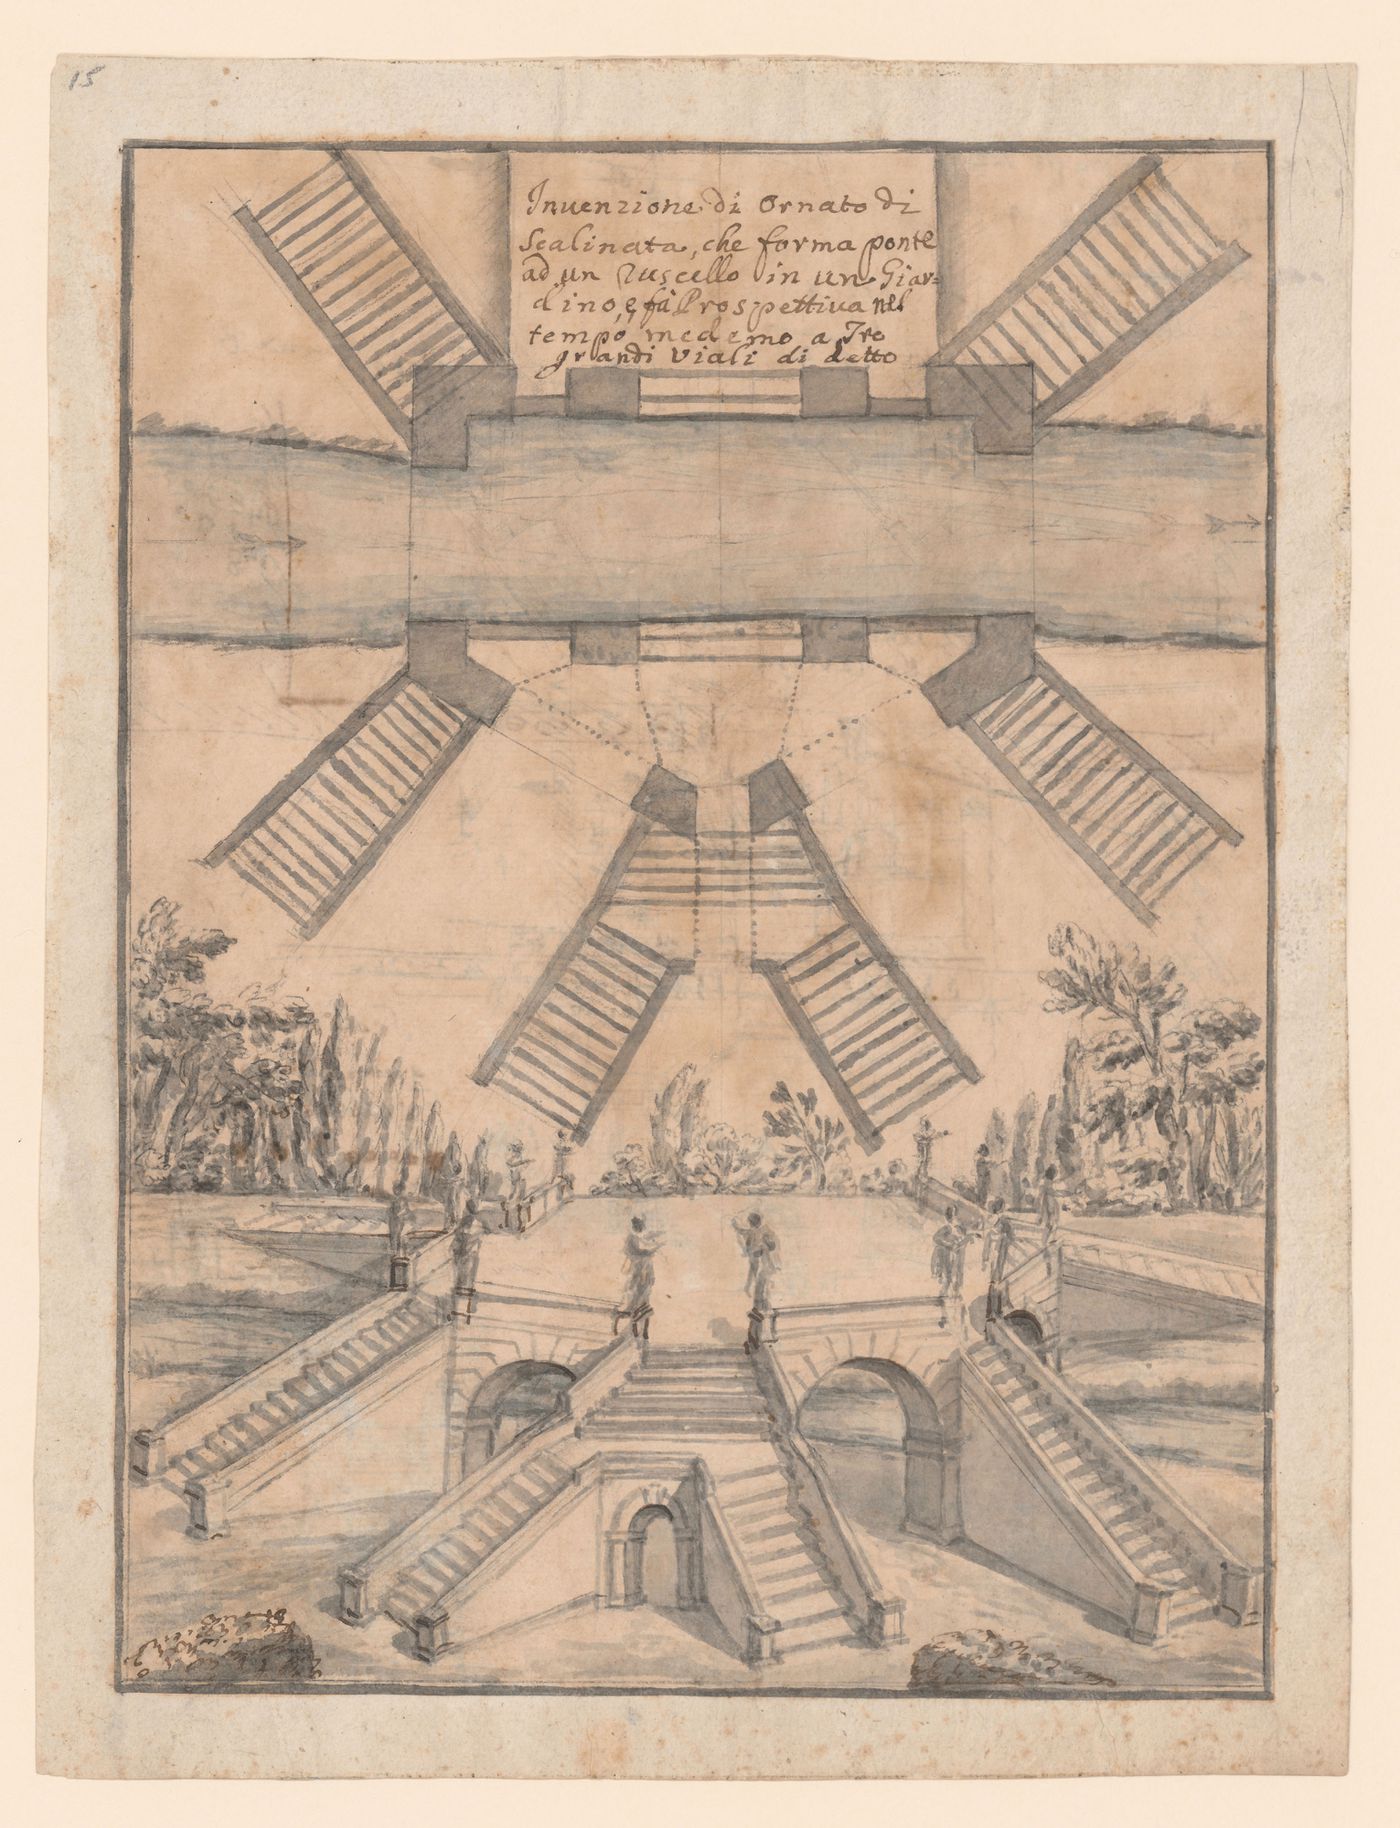 15
Inuenzione di Ornato di
Scalinata, che forma ponte
ad un Ruscello in un Giar=
dino, e fà Prospettiua nel
tempo medemo a Tre
grandi Viali di detto